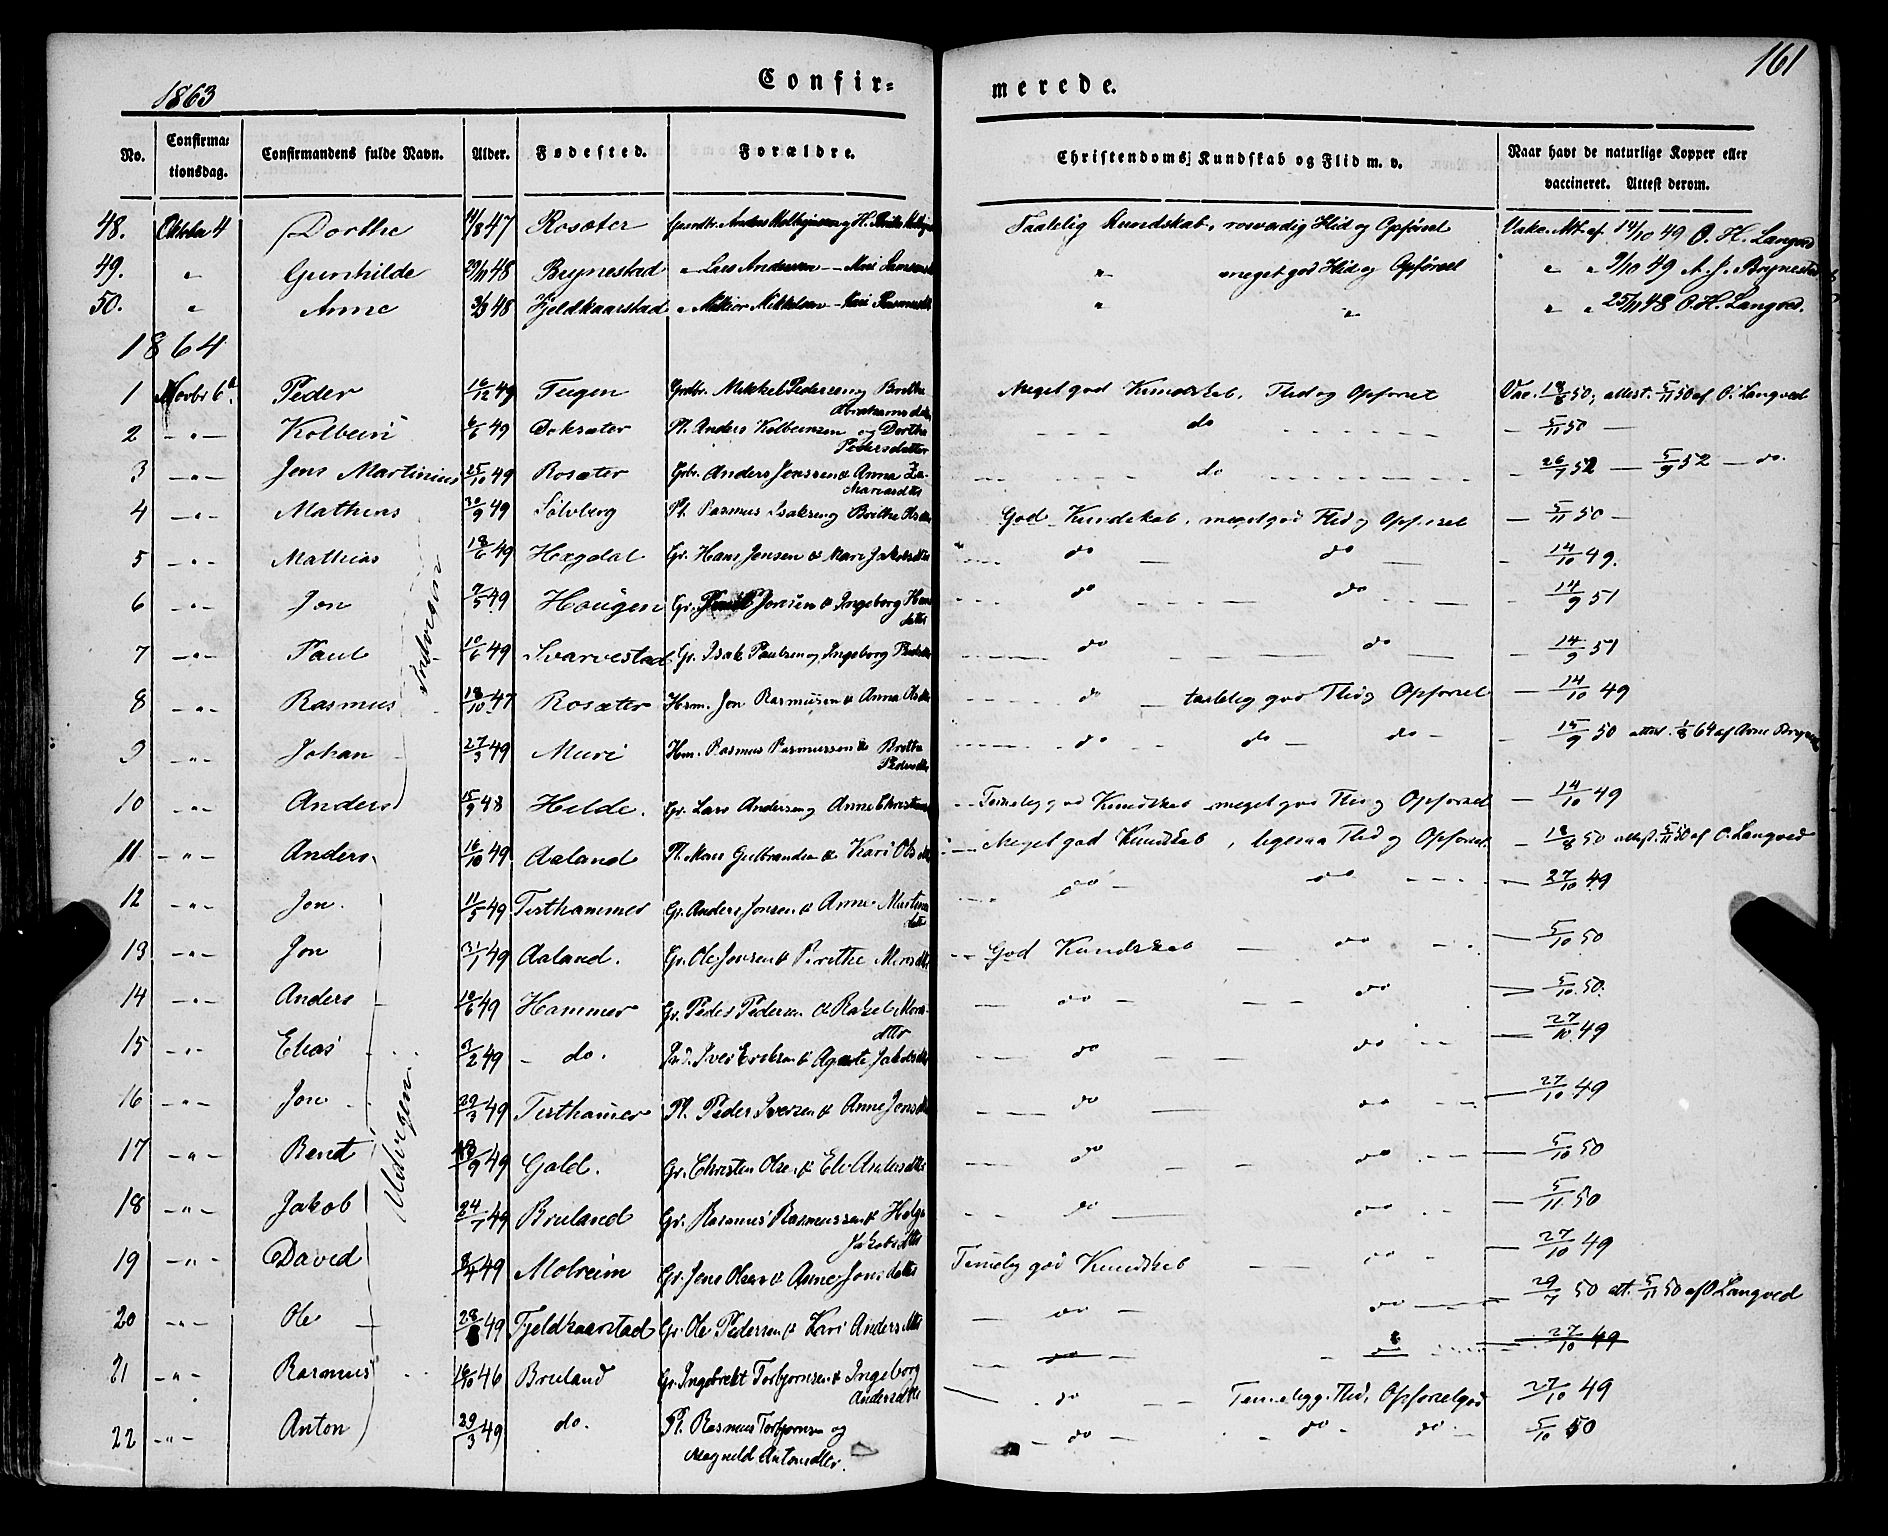 161
1863
Confir-
merede.
No.
Confirma-
tionsdag.
Confirmandens fulde Navn.
Alder.
Fødested.
Forældre.
Christendoms-Kundskab og Flid m. v.
Naar havt de naturlige Kopper eller
vaccineret. Attest derom.
48. Oktober 4 Dorthe 47 Rosæter
14/10 49 O. H. Langved
49. " Gunhilde 48 Brynestad " Lars Andersen — Mari
" meget god Flid og Opførsel " " 9/10 49 A. J. Brynestad
50. " Anne 48 Fjeldkaarstad " Mikkelsen — Kari
" " " " 25/11 48 O. H. Langved.
1864
1 Novbr 6te Peder 16/12 49 Tugen Grdbr. Mikkel Pedersen og Brithe
Abrahamsdtr
Meget god Kundskab, Flid og Opførsel Vac. 18/8 50, attest. 5/11 50 af O. Langved
2 — " — Kolbein 6/6 49 Doksæter Pl. Anders Kolbeinsen og Dorthe
Pedersdatter
do — 5/11 50 —
3 — " — Jens Martinius 25/10 49 Rosæter Grbr. Anders Jonssen & Anna
do — 26/7 52 — 5/9 52 — do.
4 — " — Mathias 30/9 49 Sølvberg Pl. Rasmus Isaksen og Brithe
God Kundskab, meget god Flid og Opførsel — 5/11 50 —
5 — " — Mathias 18/6 49 Hægdal Gr. Hans Jensen & Mari Jakobsdtr
do — do — 14/10 49.
6 — " — Jon 7/5 49 Haugen Gr. Jonsen & Ingeborg
do do — 14/9 51
7 — " — Paul 10/6 49 Svarvestad Gr. Isak Paulsen og Ingeborg
do do — 14/9 51
8 — " — Rasmus 18/10 47 Rosæter Hsm. Jon Rasmussen & Anna
do — taalelig god Flid og Opførsel — 14/10 49
9 — " — Johan 27/3 49 Muri Hsm. Rasmus Rasmussen & Brithe
Pedersdtr
do do — do — 15/9 50 attest. 1/8 64 af Arne
10 — " — Anders 15/9 48 Helde. Gr. Lars Andersen og Anne
Temelig god Kundskab meget god Flid og Opførsel — 14/10 49
Indvigen
11 — " — Anders 16/10 49 Aaland Pl. Mons Gulbrandsen & Kari Olsdtr
Meget god Kundskab, ligesaa Flid og Opførsel — 18/8 50 attest. 5/11 50 af O. Langved
12 — " — Jon. 11/5 49 Tisthammer Gr. Anders Jonsen & Anne
do — do — 27/10 49
13 — " — Jon 31/1 49 Aaland. Gr. Ole Jonsen & Brithe
God Kundskab — do — 5/10 50
14 — " — Anders 10/6 49 Hammer Gr. Peder Pedersen & Rakel
dtr
do — do — 5/10 50.
15 — " — Elias 3/2 49 — do. Iver Eriksen & Agnete Jakobsdtr
do — do — 27/10 49
16 — " — Jon 29/3 49 Tisthamer Pl. Peder Iversen & Anne Jonsdtr
do do — 27/10 49
17 — " — Bendt 18/9 49 Gald. Gr. Christen Olsen & Eli Andersdtr
do do — 5/10 50
18 — " — Jakob 24/7 49 Bruland Gr. Rasmus Rasmussen & Helge
Jakobsdtr
do do — 5/11 50
19 — " — David 49 Molreim Gr. Jens Olsen & Anne Jonsdtr
Temelig god Kundskab — do — 27/10 49
20 — " — Ole 49 Fjeldkaarstad Gr. Ole Pedersen & Kari Andersdtr
do — do — 29/7 50 att. 5/11 50 af O Langved
do do 27/10 49
21 — " — Rasmus 46 Bruland Gr. Ingebrekt Torbjørnsen & Ingeborg
Andersdtr
do Temelig g. Flid, Opførsel god 27/10 49
22 — " — Anton 29/3 49 do. Pl. Rasmus Torbjørnsen og
Magnild Antonsdtr.
do — do — do — 5/10 50
Utvigen.